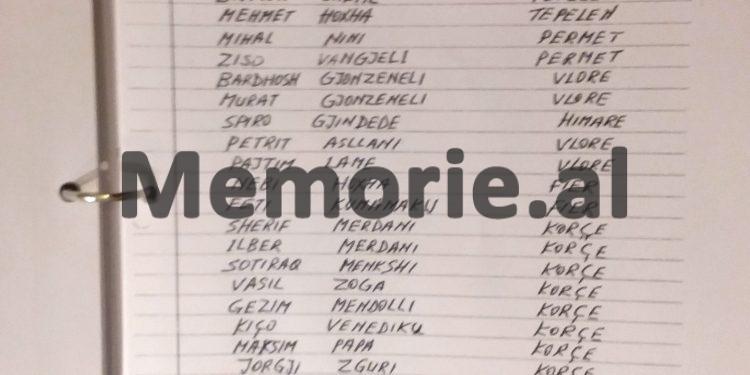 MEHMET HOXHA TEPELEN
MIHAL NINI PERMET
ZISO VANGJELI PERMET
BARDHOSH GJONZENELI VLORE
MURAT GJONZENELI VLORE
SPIRO GJINDEDE HIMARE
PETRIT ASLLANI VLORE
PAJTIM LAME VLORE
Memorie.al
NEBI HOXHA FIER
FIER
SHERIF MERDANI KORÇE
ILBER MERDANI KORÇE
SOTIRAQ MENKSHI KORÇE
VASIL ZOGA KORÇE
GEZIM MENDOLLI KORÇE
KIÇO VENEDIKU KORÇE
MAKSIM PAPA KORÇE
JORGJI ZGURI KORÇE